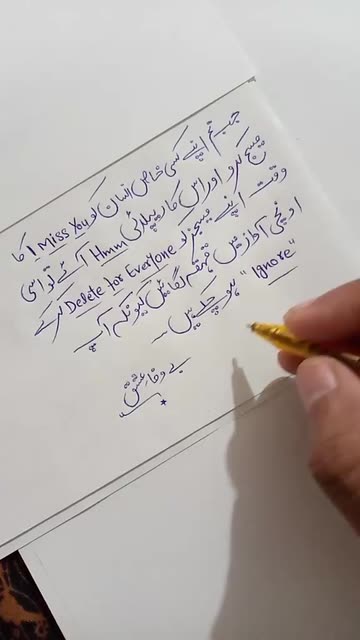 جب تم اپنے کسی خاص انسان کو I Miss You کا
میسج کرو اور اس کا ریپلائی Hmm آئے تو اسی
وقت اپنے میسجز کو Delete for Everyone کرکے
اونچی آواز میں قہقہہ لگائیں کیونکہ آپ
"Ignore" ہو چکے ہیں۔
بے وفا عشق